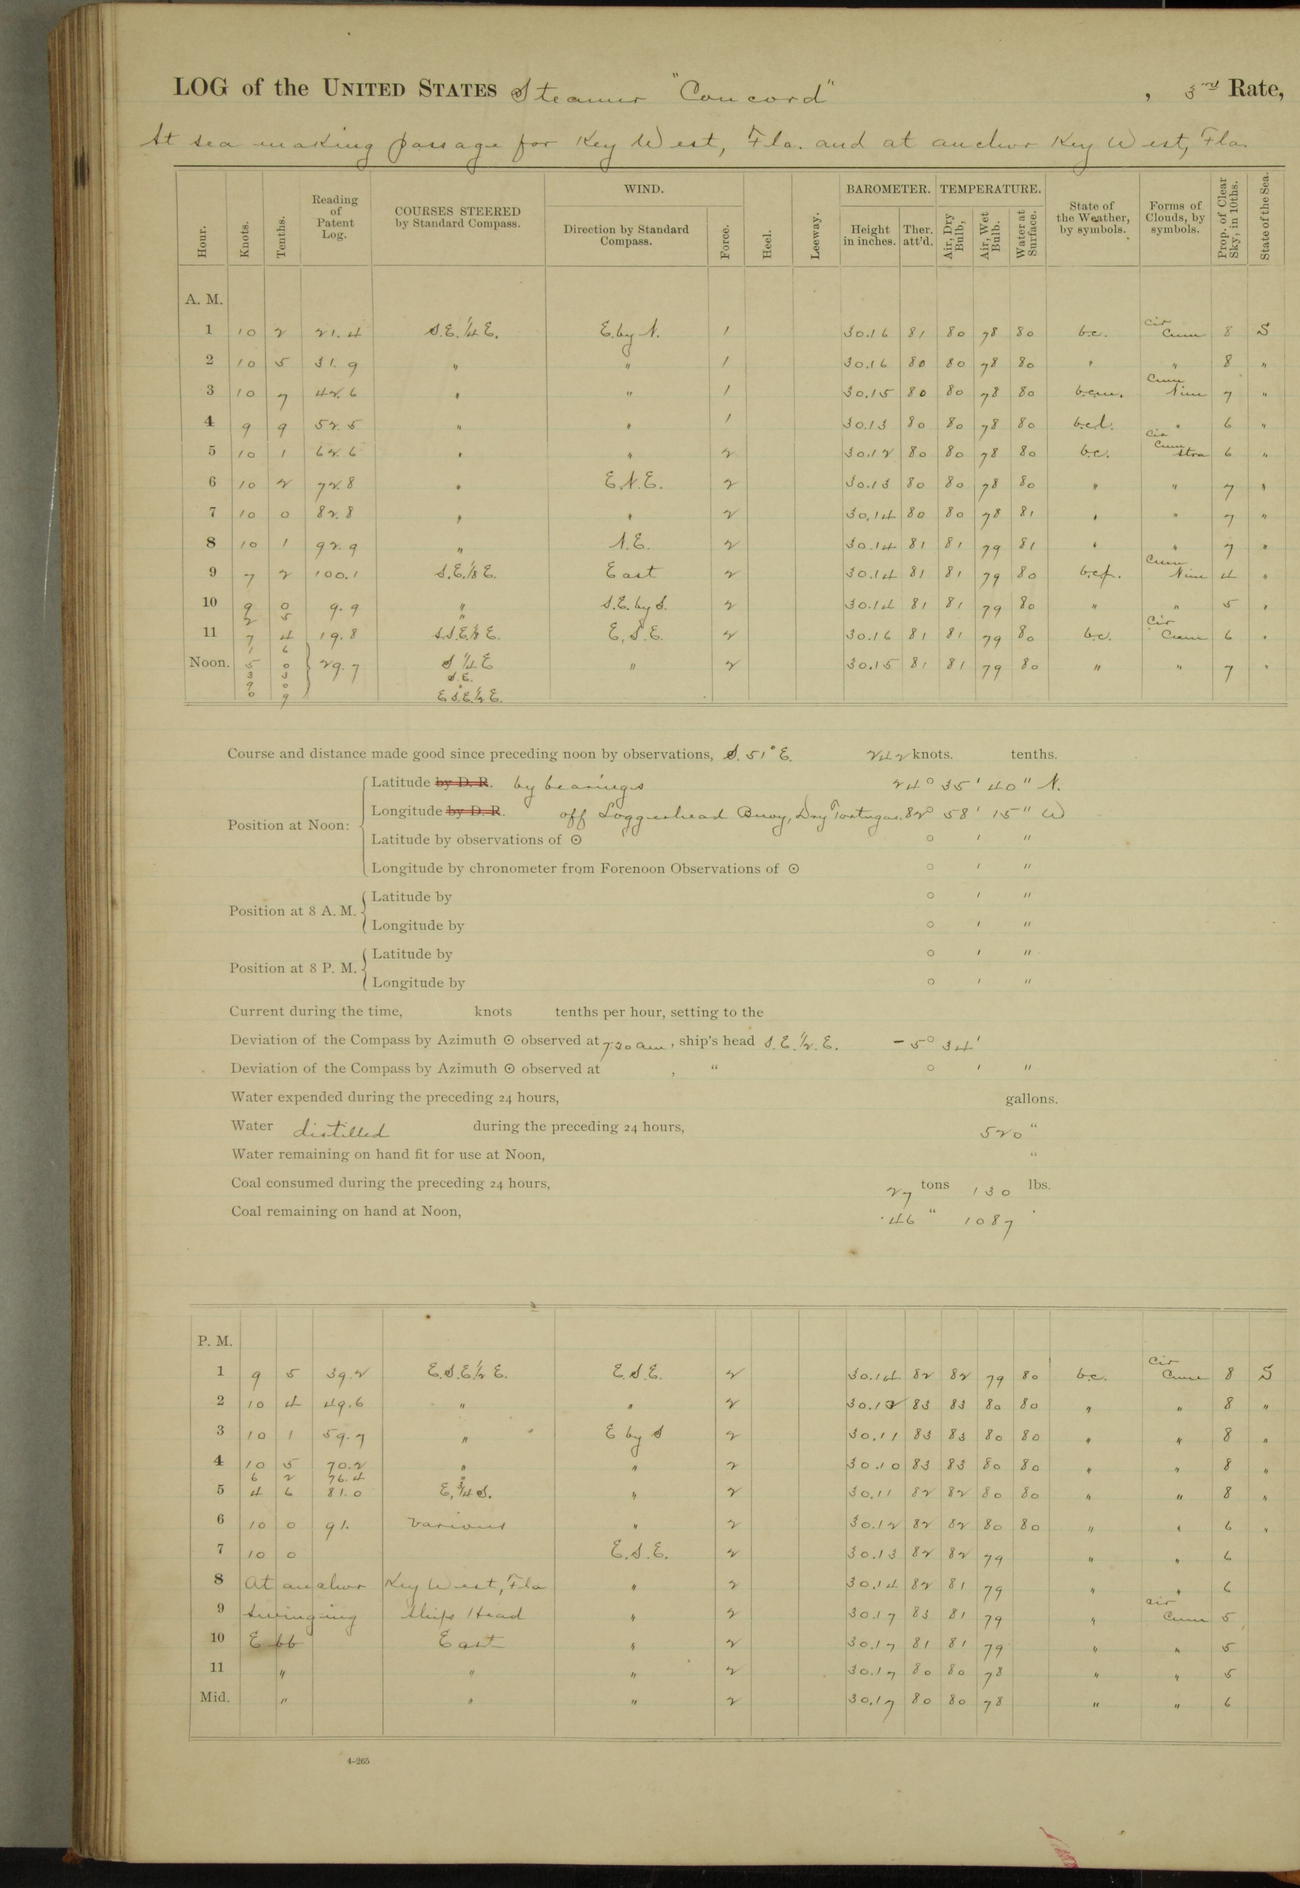 LOG of the UNITED STATES Steamer "Concord" , 3rd Rate,
At sea making passage for Key West, Fla. and at anchor Key West, Fla.
Hour. Knots. Tenths. Reading of Patent Log. COURSES STEERED by Standard Compass. WIND. Direction by Standard Compass. Force. Heel. Leeway. BAROMETER. Height in inches. Ther. att'd. TEMPERATURE. Air, Dry Bulb, Air, Wet Bulb. Water at Surface. State of the Weather, by symbols. Forms of Clouds, by symbols. Prop. of Clear Sky, in 10ths. State of the Sea.
A. M.
1 10 2 21.4 S.E. 1/4 E. E. by N. 1 30.16 81 80 78 80 b.c. Cir Cum 8 S
2 10 5 31.9 " " 1 30.16 80 80 78 80 " " 8 "
3 10 7 42.6 " " 1 30.15 80 80 78 80 Cum Nim 7 "
4 9 9 52.5 " " 1 30.13 80 80 78 80 b.c.l. " 6 "
5 10 1 62.6 " " 2 30.12 80 80 78 80 b.c. Cir Cum Stra 6 "
6 10 2 72.8 " E.N.E. 2 30.13 80 80 78 80 " " 7 "
7 10 0 82.8 " " 2 30.14 80 80 78 81 " " 7 "
8 10 1 92.9 " N.E. 2 30.14 81 81 79 81 " " 7 "
9 7 2 100.1 S.E. 1/8 E. East 2 30.14 81 81 79 80 Cum Nim 4 "
10 9 0 9.9 " S.E. by S. 2 30.14 81 81 79 80 " " 5 "
2 5 "
11 7 4 19.8 S.S.E. 1/8 E. E.S.E. 2 30.16 81 81 79 80 b.c. Cir Cum 6 "
1 6
Noon. 5 0 29.7 S 1/4 E " 2 30.15 81 81 79 80 " " 7 "
3 3 S.E.
9 0 "
0 9 E.S.E. 1/2 E.
Course and distance made good since preceding noon by observations, S. 51° E. 242 knots. tenths.
Position at Noon:
Latitude by D. R. by bearings 24° 35' 40" N.
Longitude by D. R. off Loggerhead Buoy, Dry Tortugas. 82° 58' 15" W
Latitude by observations of ☉ ° ' "
Longitude by chronometer from Forenoon Observations of ☉ ° ' "
Position at 8 A. M.
Latitude by ° ' "
Longitude by ° ' "
Position at 8 P. M.
Latitude by ° ' "
Longitude by ° ' "
Current during the time, knots tenths per hour, setting to the
Deviation of the Compass by Azimuth ☉ observed at 7:30 am, ship's head S.E. 1/2 E. - 5° 34'
Deviation of the Compass by Azimuth ☉ observed at , " ° ' "
Water expended during the preceding 24 hours, gallons.
Water distilled during the preceding 24 hours, 520 "
Water remaining on hand fit for use at Noon, "
Coal consumed during the preceding 24 hours, 27 tons 130 lbs.
Coal remaining on hand at Noon, 46 " 1087 "
P. M.
1 9 5 39.2 E.S.E. 1/2 E. E.S.E. 2 30.14 82 82 79 80 b.c. Cir Cum 8 S
2 10 4 49.6 " " 2 30.12 83 83 80 80 " " 8 "
3 10 1 59.7 " E by S 2 30.11 83 83 80 80 " " 8 "
4 10 5 70.2 " " 2 30.10 83 83 80 80 " " 8 "
6 2 76.4 "
5 4 6 81.0 E. 3/4 S. " 2 30.11 82 82 80 80 " " 8 "
6 10 0 91. various " 2 30.12 82 82 80 80 " " 6 "
7 10 0 E.S.E. 2 30.13 82 82 79 " " 6
8 At anchor Key West, Fla " 2 30.14 82 81 79 " " 6
9 Swinging Ships Head " 2 30.17 83 81 79 " Cir Cum 5
10 Ebb East " 2 30.17 81 81 79 " " 5
11 " " " 2 30.17 80 80 78 " " 5
Mid. " " " 2 30.17 80 80 78 " " 6
4-265